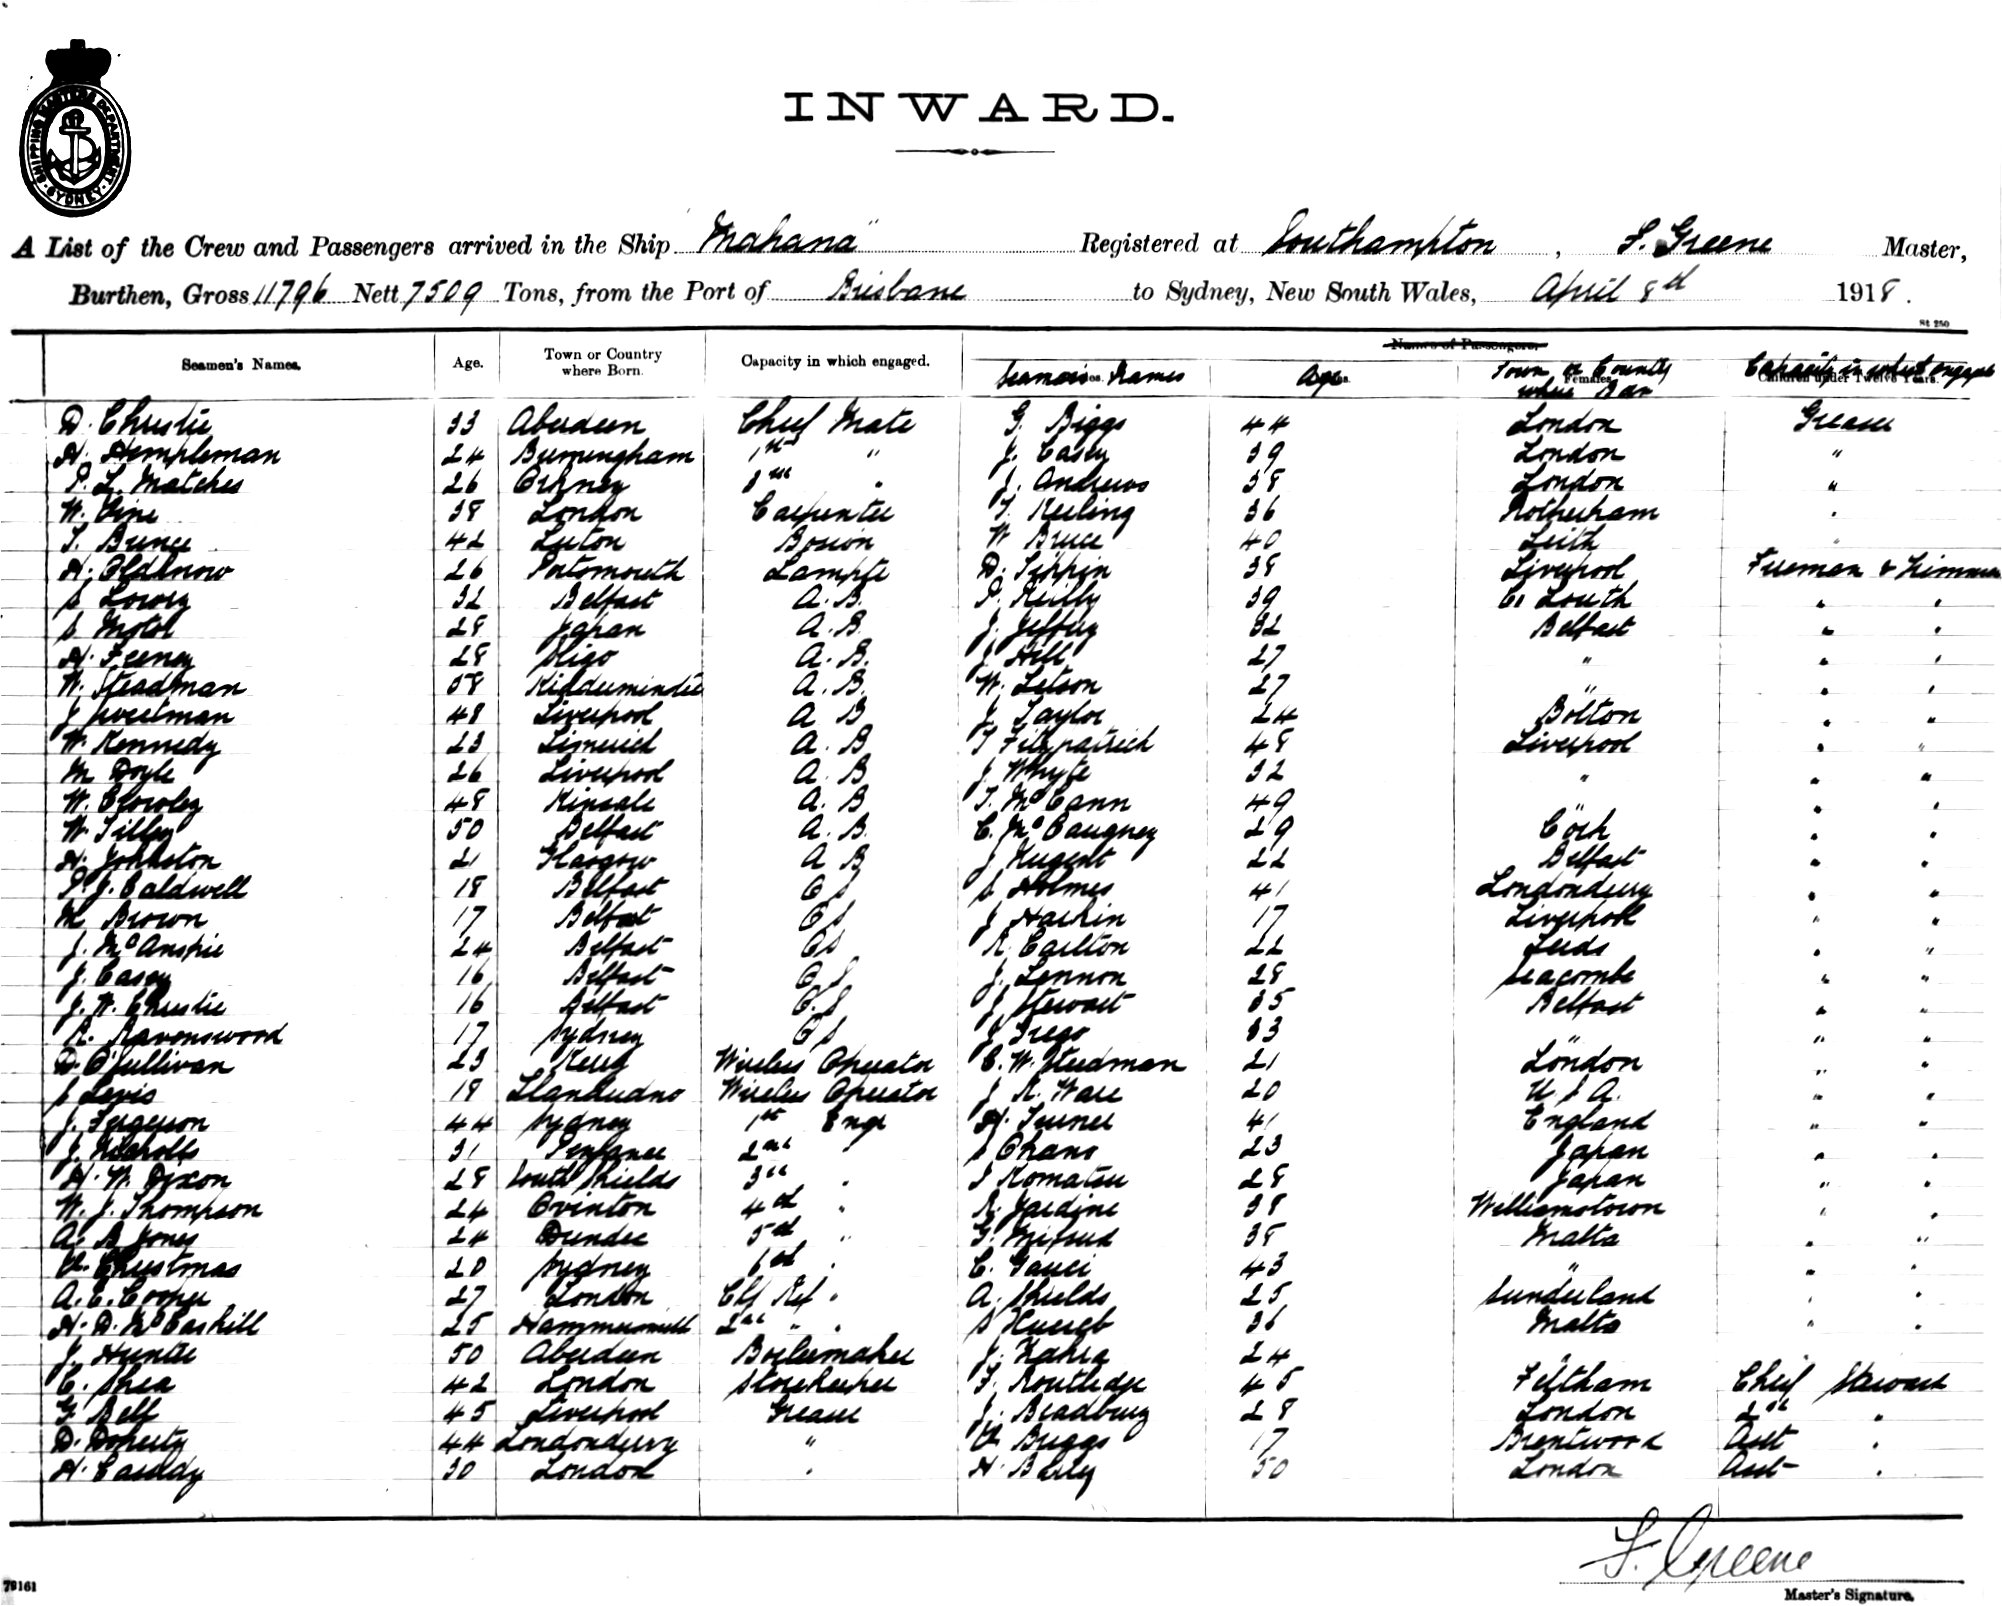 SHIPPING MASTERS DEPARTMENT · SYDNEY ·
INWARD.
A List of the Crew and Passengers arrived in the Ship "Mahana" Registered at Southampton, F. Greene Master,
Burthen, Gross 11796 Nett 7509 Tons, from the Port of Brisbane to Sydney, New South Wales, April 8th 1918.
St 250
Names of Passengers.
Seamen's Names. Age. Town or Country where Born. Capacity in which engaged. Seamens Names Age Town or Country where Born Capacity in which engaged
D. Christie 33 Aberdeen Chief Mate G. Biggs 44 London Greaser
H. Hempleman 24 Birmingham 1st " J. Casey 39 London "
P. L. Matches 26 Orkney 3rd " J. Andrews 38 London "
W. Cine 38 London Carpenter T. Keeling 36 Rotherham "
T. Bunce 42 Luton Bosun W Bruce 40 Leith "
H. Oldknow 26 Portsmouth Lampte D. Tippin 38 Liverpool Fireman & Trimmer
S Lowry 32 Belfast A.B. P. Reilly 39 Co Louth " "
S Motol 28 Japan A.B. J. Jeffrey 32 Belfast " "
H. Feeney 28 Sligo A.B. J Hill 27 " " "
W. Steadman 58 Kidderminster A.B. W. Letson 27 " " "
J Sweetman 48 Liverpool A B J. Taylor 24 Bolton " "
W. Kennedy 23 Limerick A.B T Fitzpatrick 48 Liverpool " "
M Doyle 26 Liverpool A.B J. Whyte 32 " " "
W. Crowley 48 Kinsale A.B T. McCann 49 " " "
W. Tilley 50 Belfast A.B. C. McCaugney 29 Cork " "
H. Johnston 21 Glasgow A B J Nugent 22 Belfast " "
P. J. Caldwell 18 Belfast O S S Holmes 41 Londonderry " "
M Brown 17 Belfast OS J Harkin 17 Liverpool " "
J. McAnspie 24 Belfast OS R. Carlton 22 Leeds " "
J. Casey 16 Belfast O.S J. Lennon 28 Seacombe " "
J. W. Christie 16 Belfast O.S J Stewart 35 Belfast " "
R. Ravenswood 17 Sydney OS J Grego 33 " " "
D. O'Sullivan 23 Kerry Wireless Operator C. W. Steedman 21 London " "
S Levis 18 Llandudno Wireless Operator J R. Ware 20 U.S.A. " "
J. Ferguson 44 Sydney 1st Engr H. Turner 41 England " "
J. Nicholls 31 Penzance 2nd " S Ohano 23 Japan " "
H. W. Dixon 28 South Shields 3rd " S Komatsu 28 Japan " "
W. J. Thompson 24 Ovinton 4th " R. Jardine 38 Williamstown " "
A. B Jones 24 Dundee 5th " G. Mifsud 38 Malta " "
Christmas 20 Sydney 6th " C. Gauci 43 " " "
A. E. Cooper 27 London Chf Ref " A. Shields 25 Sunderland " "
H. D. McCaskill 25 Hammersmith 2nd " " S Xuereb 36 Malta " "
J. Hunter 50 Aberdeen Boilermaker J. Zahra 24 "
C. Shea 42 London Storekeeper F. Routledge 45 Feltham Chief Steward
G Bell 45 Liverpool Greaser J. Bradbury 28 London 2nd "
D. Doherty 44 Londonderry " Briggs 17 Brentwood Asst "
H. Cassidy 30 London " H. 50 London Asst "
F. Greene
Master's Signature.
79161